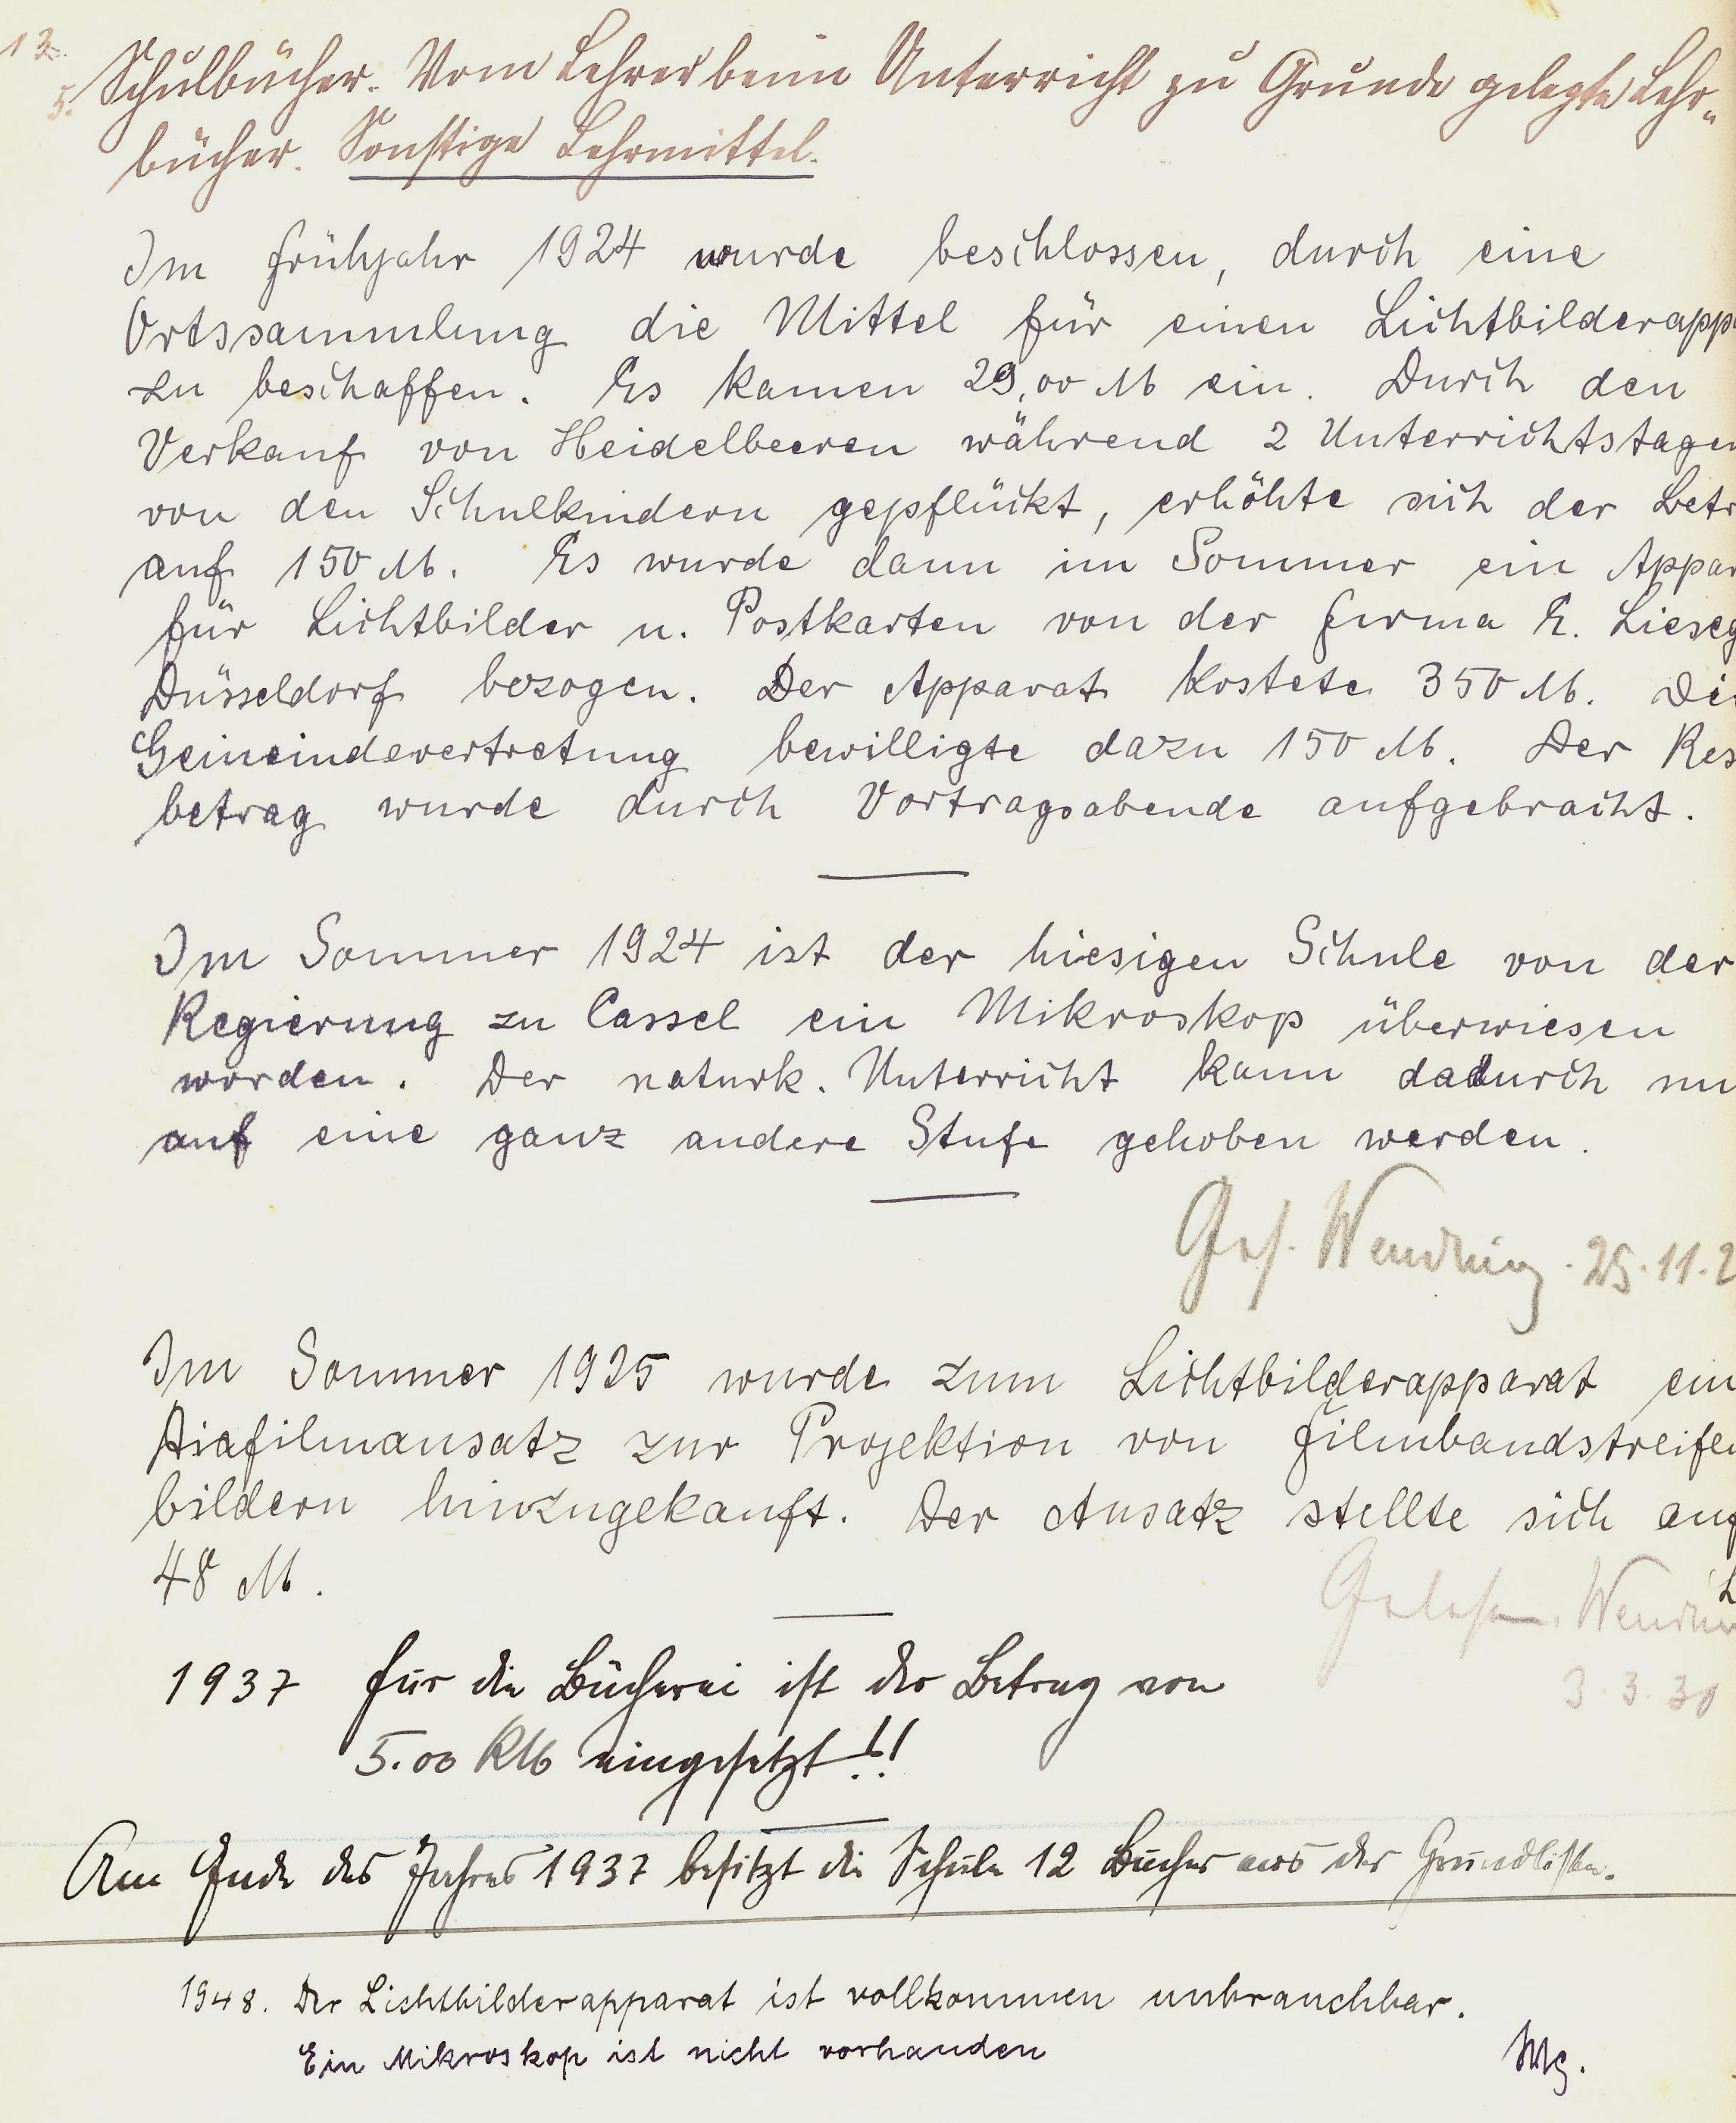 13.
5. Schulbücher. Vom Lehrer beim Unterricht zu Grunde gelegte Lehr-
bücher. Sonstige Lehrmittel.
Im Frühjahr 1924 wurde beschlossen, durch eine
Ortssammlung die Mittel für einen Lichtbilderapp
zu beschaffen. Es kamen 29,00 M ein. Durch den
Verkauf von Heidelbeeren während 2 Unterrichtstagen
von den Schulkindern gepflückt, erhöhte sich der Betr
auf 150 M. Es wurde dann im Sommer ein Appar
für Lichtbilder u. Postkarten von der Firma E. Lieseg
Düsseldorf bezogen. Der Apparat kostete 350 M. Die
Gemeindevertretung bewilligte dazu 150 M. Der Res
betrag wurde durch Vortragsabende aufgebracht.
Im Sommer 1924 ist der hiesigen Schule von der
Regierung zu Cassel ein Mikroskop überwiesen
worden. Der naturk. Unterricht kann dadurch nu
auf eine ganz andere Stufe gehoben werden.
Ges. Wendring. 25.11.2
Im Sommer 1925 wurde zum Lichtbilderapparat ein
Diafilmansatz zur Projektion von Filmbandstreifen
bildern hinzugekauft. Der Ansatz stellte sich auf
48 M.
Gelesen. Wendrin
3.3.30
1937 Für die Bücherei ist der Betrag von
5.00 RM eingesetzt!!
Am Ende des Jahres 1937 besitzt die Schule 12 Bücher aus der Grundliste.
1948. Der Lichtbilderapparat ist vollkommen unbrauchbar.
Ein Mikroskop ist nicht vorhanden